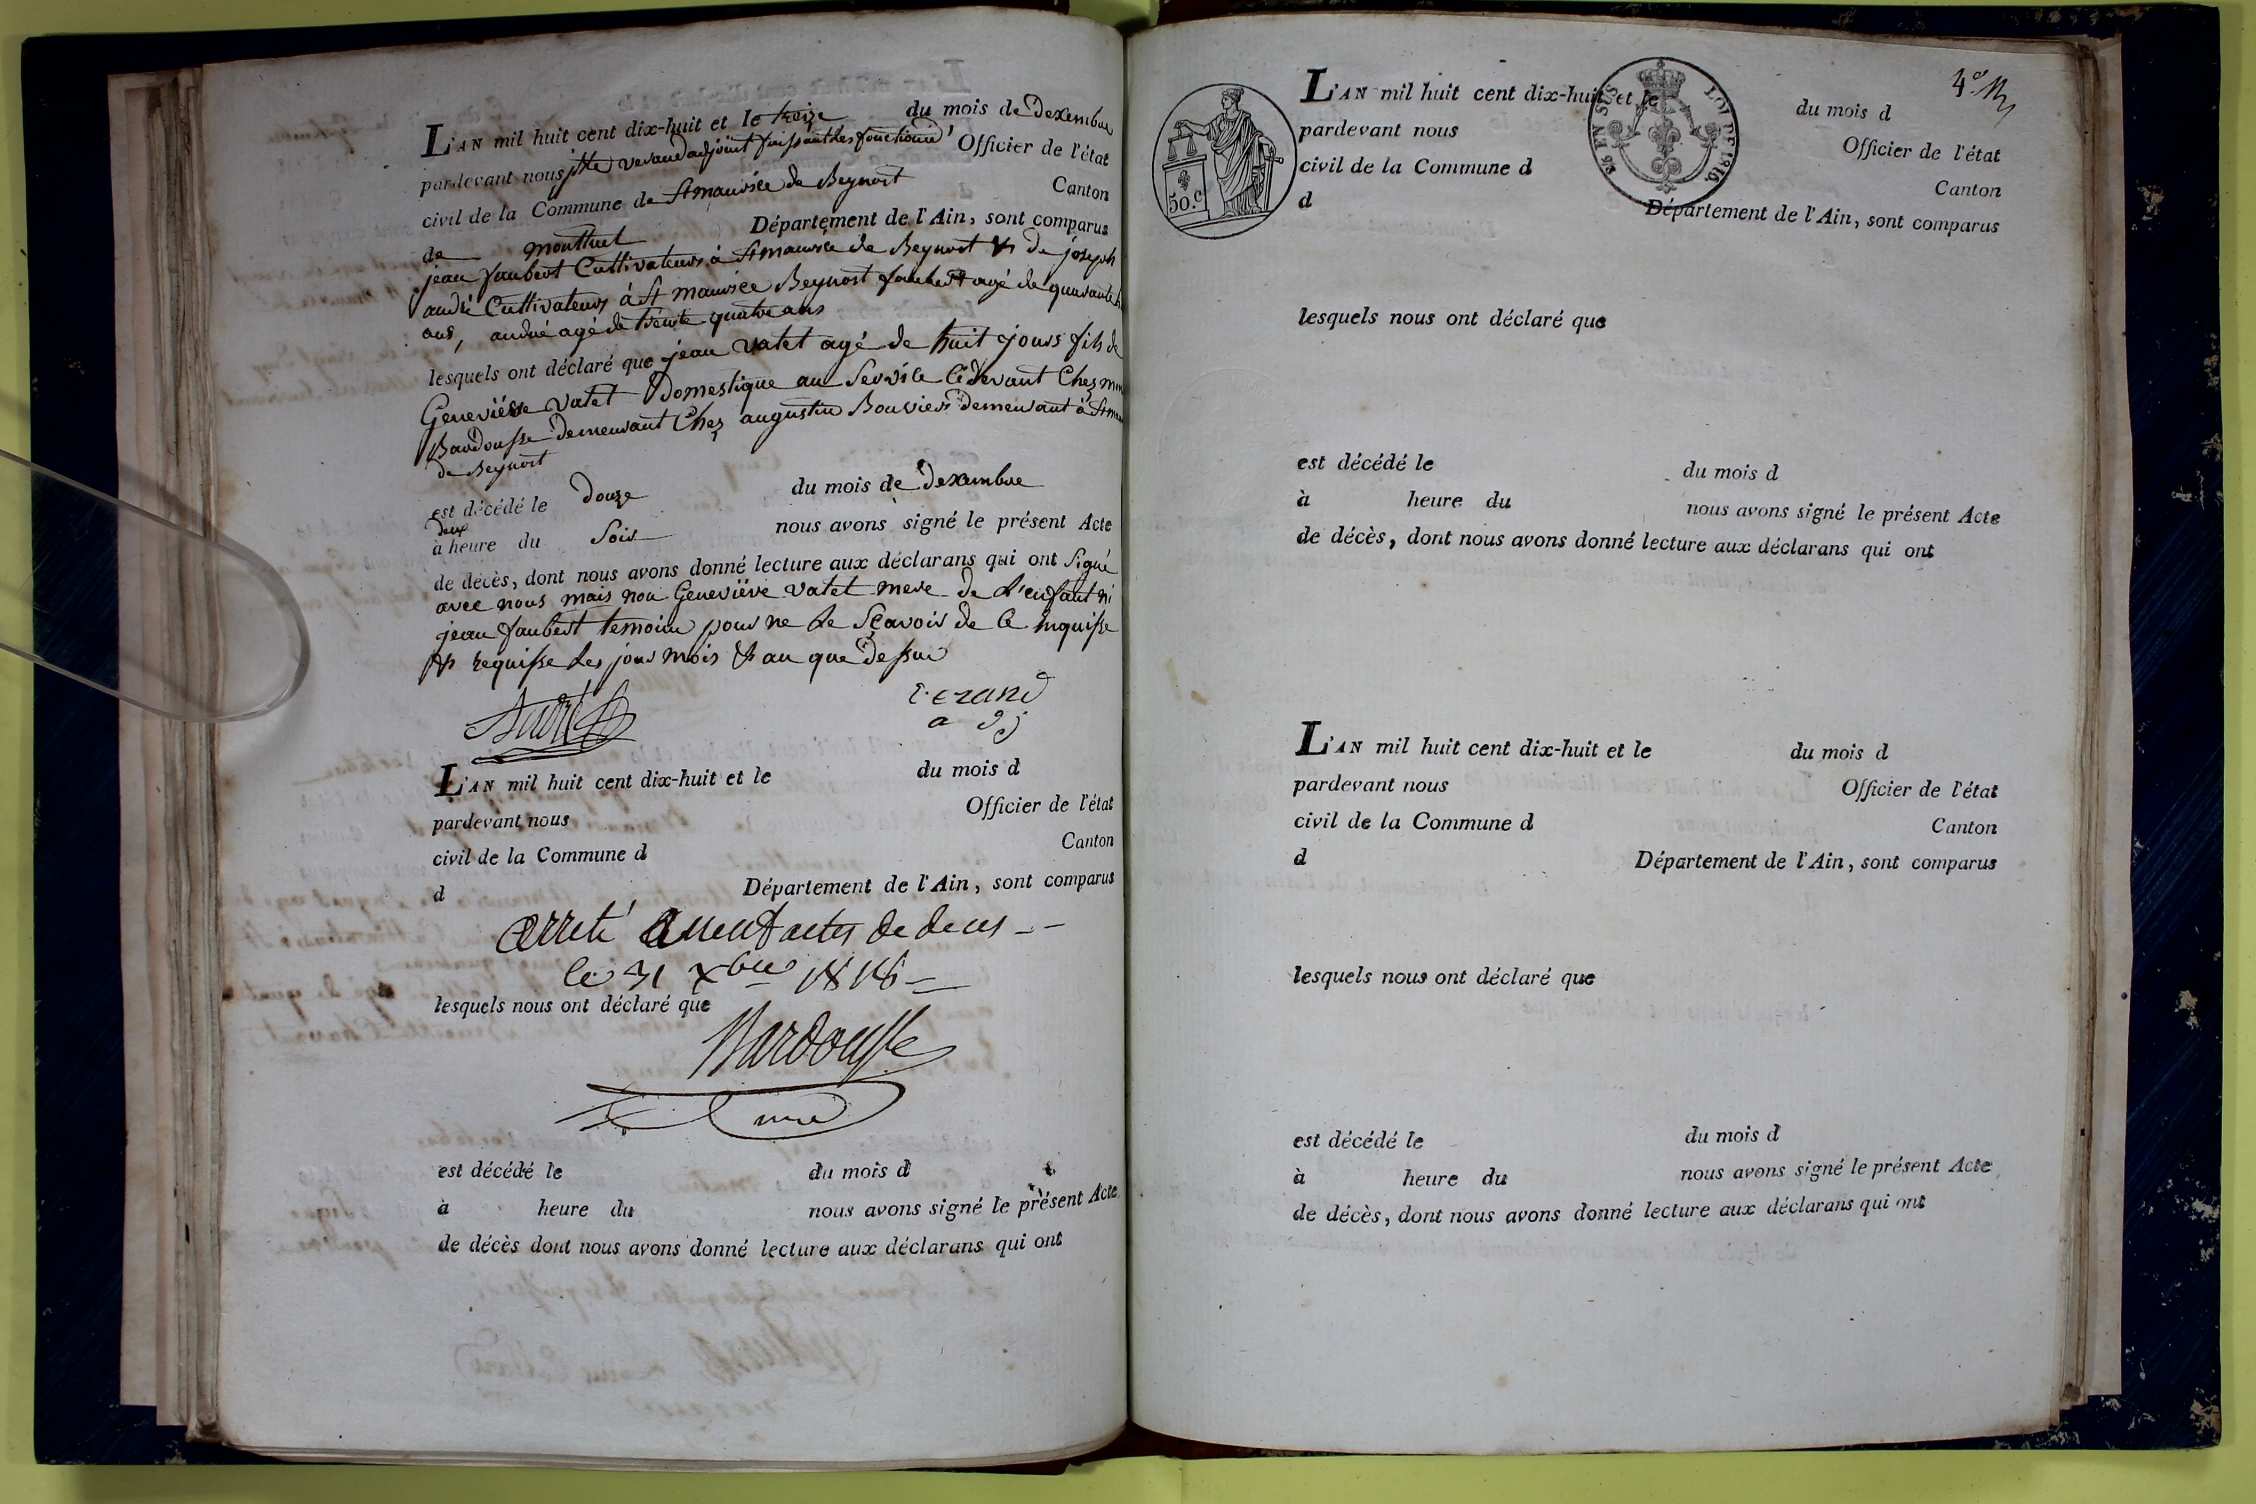 L'AN mil huit cent dix-huit et le treize du mois de dexembre
pardevant nous jte verand adjoint faissant les fonctions d' Officier de l'état
civil de la Commune de St maurice de Beynost Canton
de montluel Département de l'Ain, sont comparus
jean faubert Cultivateurs à St maurice de Beynost & de joseph
andré Cultivateurs à St maurice Beynost faubert agé de quarante
ans, andré agé de trente quatre ans
lesquels ont déclaré que jean vatet agé de huit jours fils de
Geneviéve vatet domestique au Service cidevant Chez
Bardousse demeurant Chez augustin Bouvier demeurant à St
de Beynost
est décédé le douze du mois de dexembre
deux
à heure du Soir nous avons signé le présent Acte
de décès, dont nous avons donné lecture aux déclarans qui ont Signé
avec nous mais non Geneviéve vatet mere de L'enfant ni
jean faubert temoin pour ne le Sçavoir de ce inquisse
& requisse Les jour mois & an que dessus
André verand
a dj
L'AN mil huit cent dix-huit et le du mois d
pardevant nous Officier de l'état
civil de la Commune d Canton
d Département de l'Ain, sont comparus
arreté a neuf actes de deces
le 31 xbre 1818
lesquels nous ont déclaré que
Bardousse
mre
est décédé le du mois d
à heure du nous avons signé le présent Acte
de décès dont nous avons donné lecture aux déclarans qui ont
4e
50.C
25 EN SUS LOI DE 1816.
L'AN mil huit cent dix-huit et le du mois d
pardevant nous Officier de l'état
civil de la Commune d Canton
d Département de l'Ain, sont comparus
lesquels nous ont déclaré que
est décédé le du mois d
à heure du nous avons signé le présent Acte
de décès, dont nous avons donné lecture aux déclarans qui ont
L'AN mil huit cent dix-huit et le du mois d
pardevant nous Officier de l'état
civil de la Commune d Canton
d Département de l'Ain, sont comparus
lesquels nous ont déclaré que
est décédé le du mois d
à heure du nous avons signé le présent Acte
de décès, dont nous avons donné lecture aux déclarans qui ont